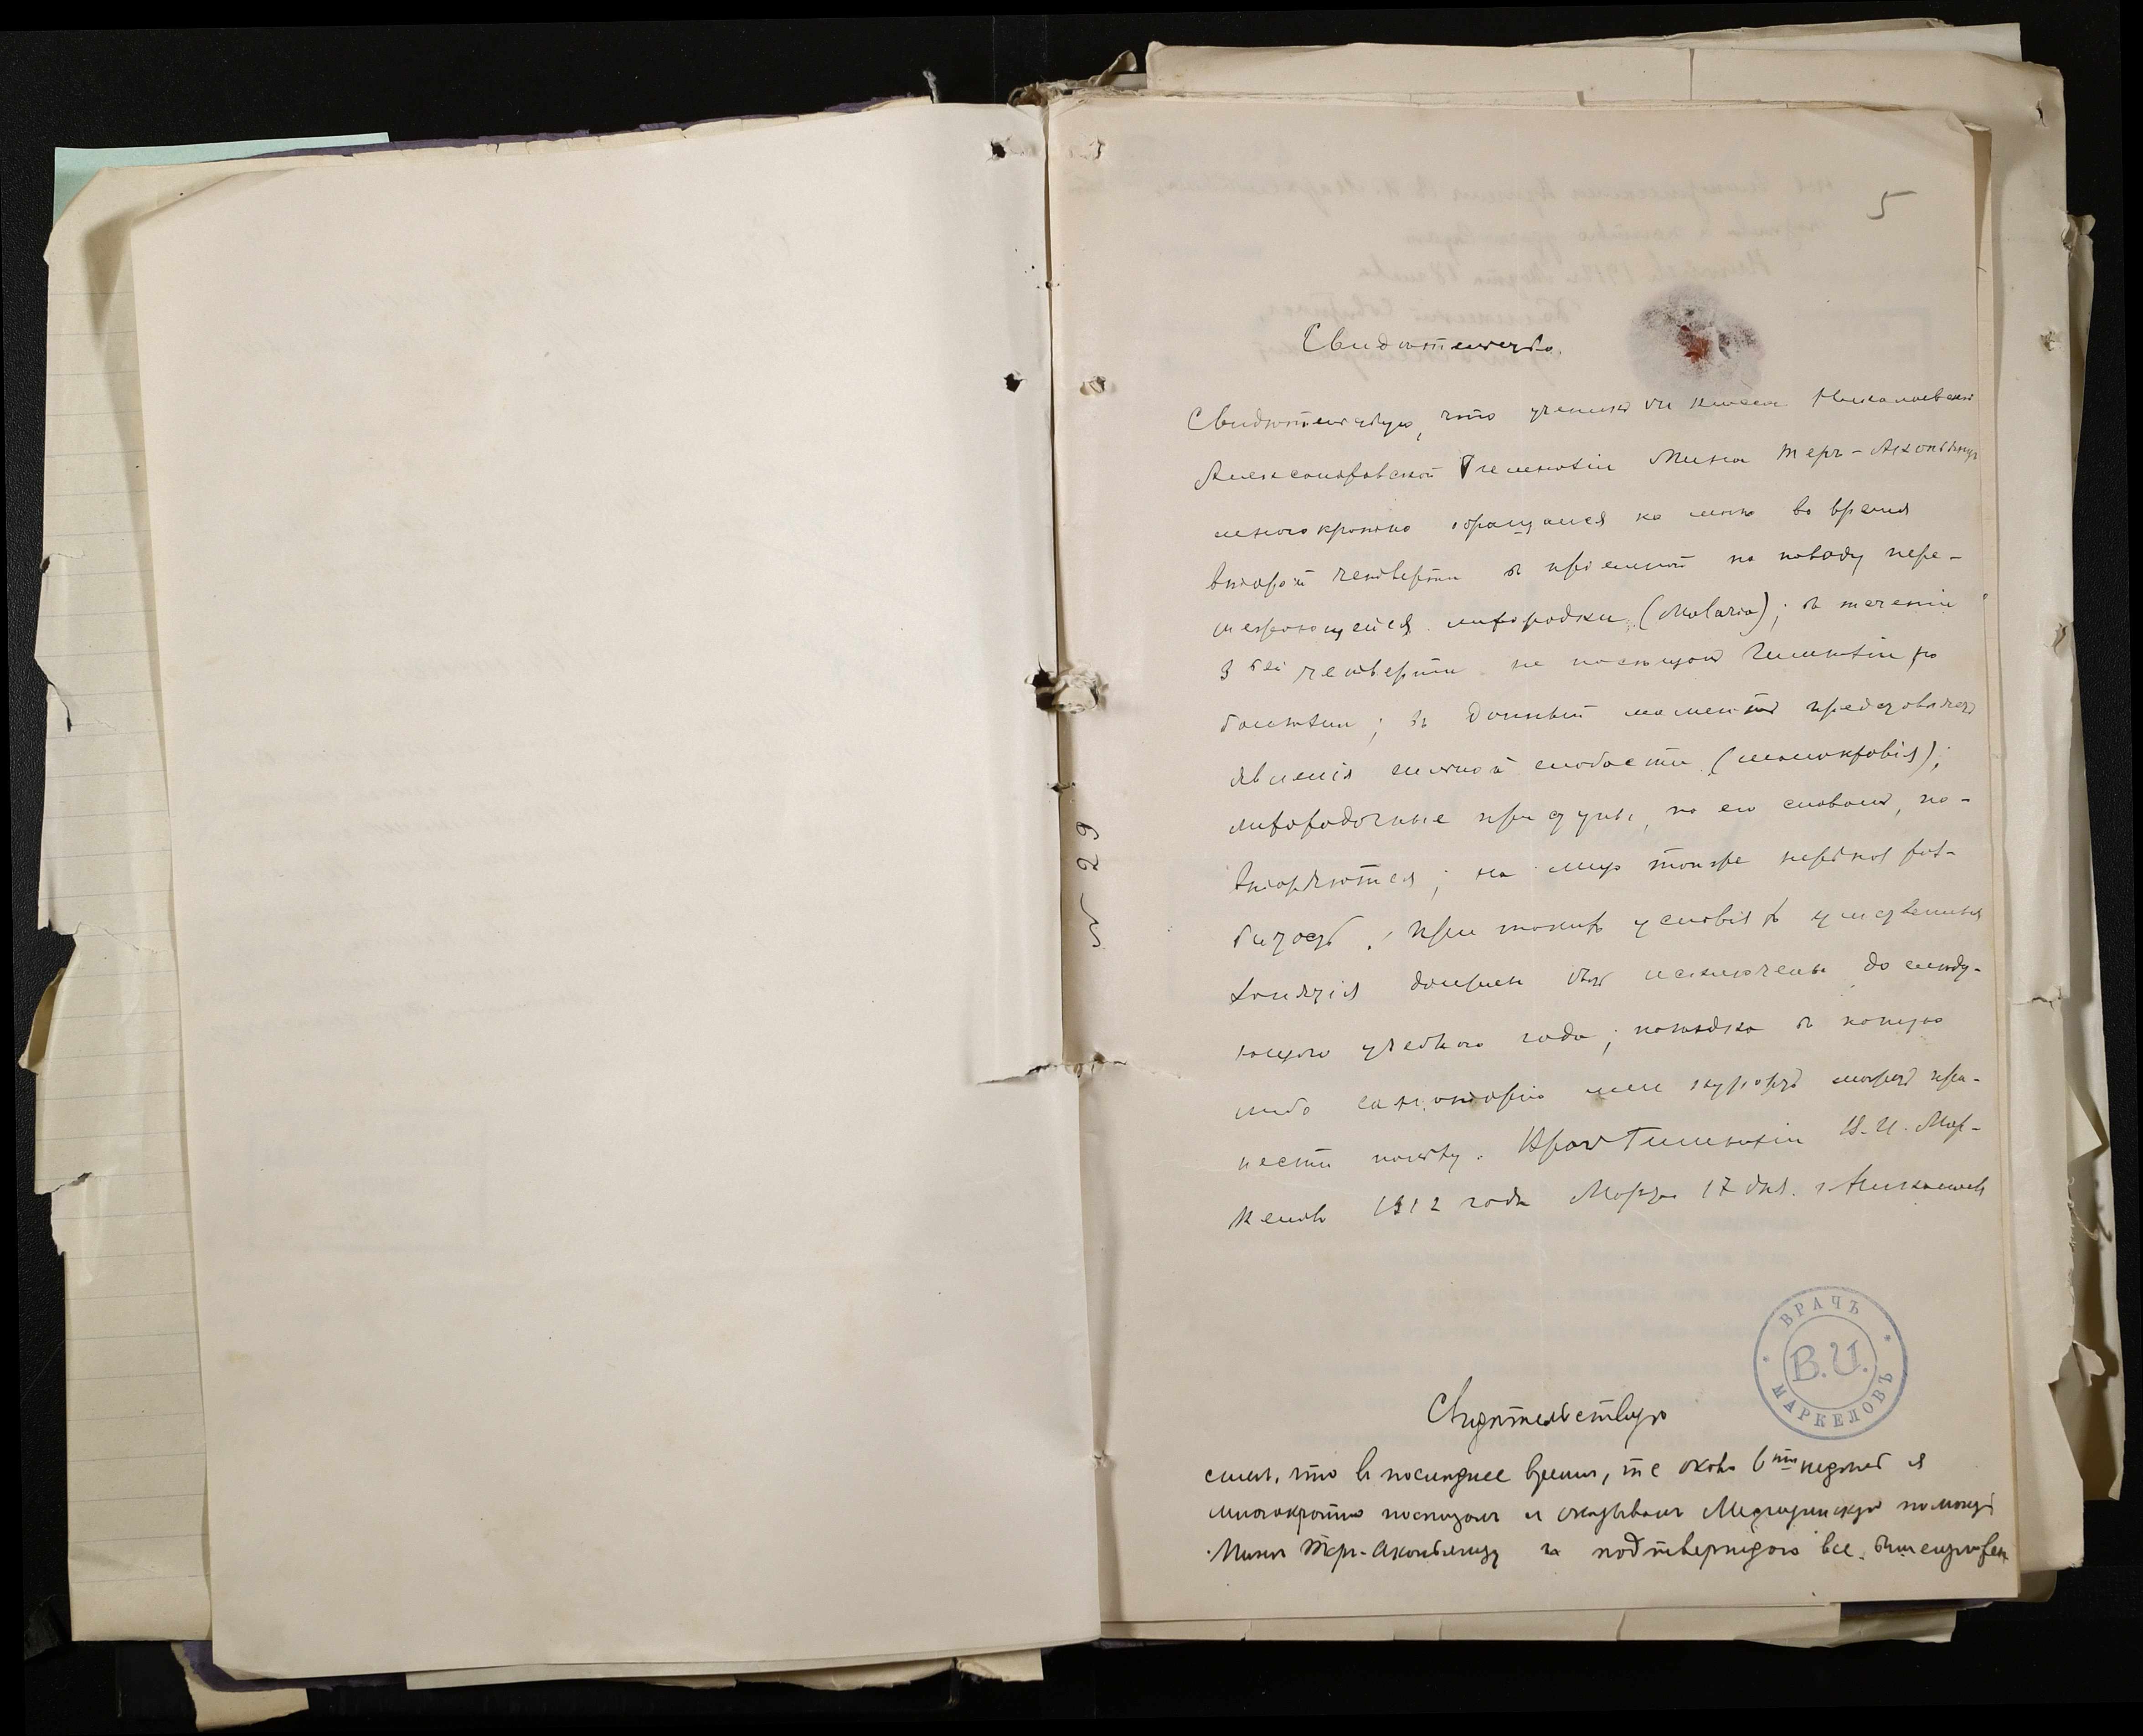 5
Свидѣтельство.
Свидѣтельствую, что ученикъ класса Николаевской
Александровской Гимназіи Мина Теръ-Акопьянцъ
многократно обращался ко мнѣ во время
второй четверти въ пріемной по поводу пере-
межающейся лихорадки (Malaria); въ теченіи
3 ей четверти не посѣщалъ Гимназіи по
болѣзни; въ данный моментъ представляетъ
явленія сильной слабости (малокровія);
лихорадочные приступы, по его словамъ, по-
вторяются; на лицо также нервная раз-
битость. При такихъ условіяхъ умственныя
занятія должны быть исключены до слѣду-
ющаго учебнаго года; поѣздка въ какую
либо санаторію или курортъ можетъ при-
нести пользу. Врачъ Гимназіи В. И. Мар-
келовъ 1912 года Марта 17 дня. г. Николаевъ
ВРАЧЪ
В.И.
МАРКЕЛОВЪ
№ 29
Свидѣтельствую
симъ, что въ послѣднее время, т е около 6 ти недѣль я
многократно посѣщалъ и оказывалъ Медицинскую помощь
Минѣ Теръ-Акопьянцу и подтверждаю все